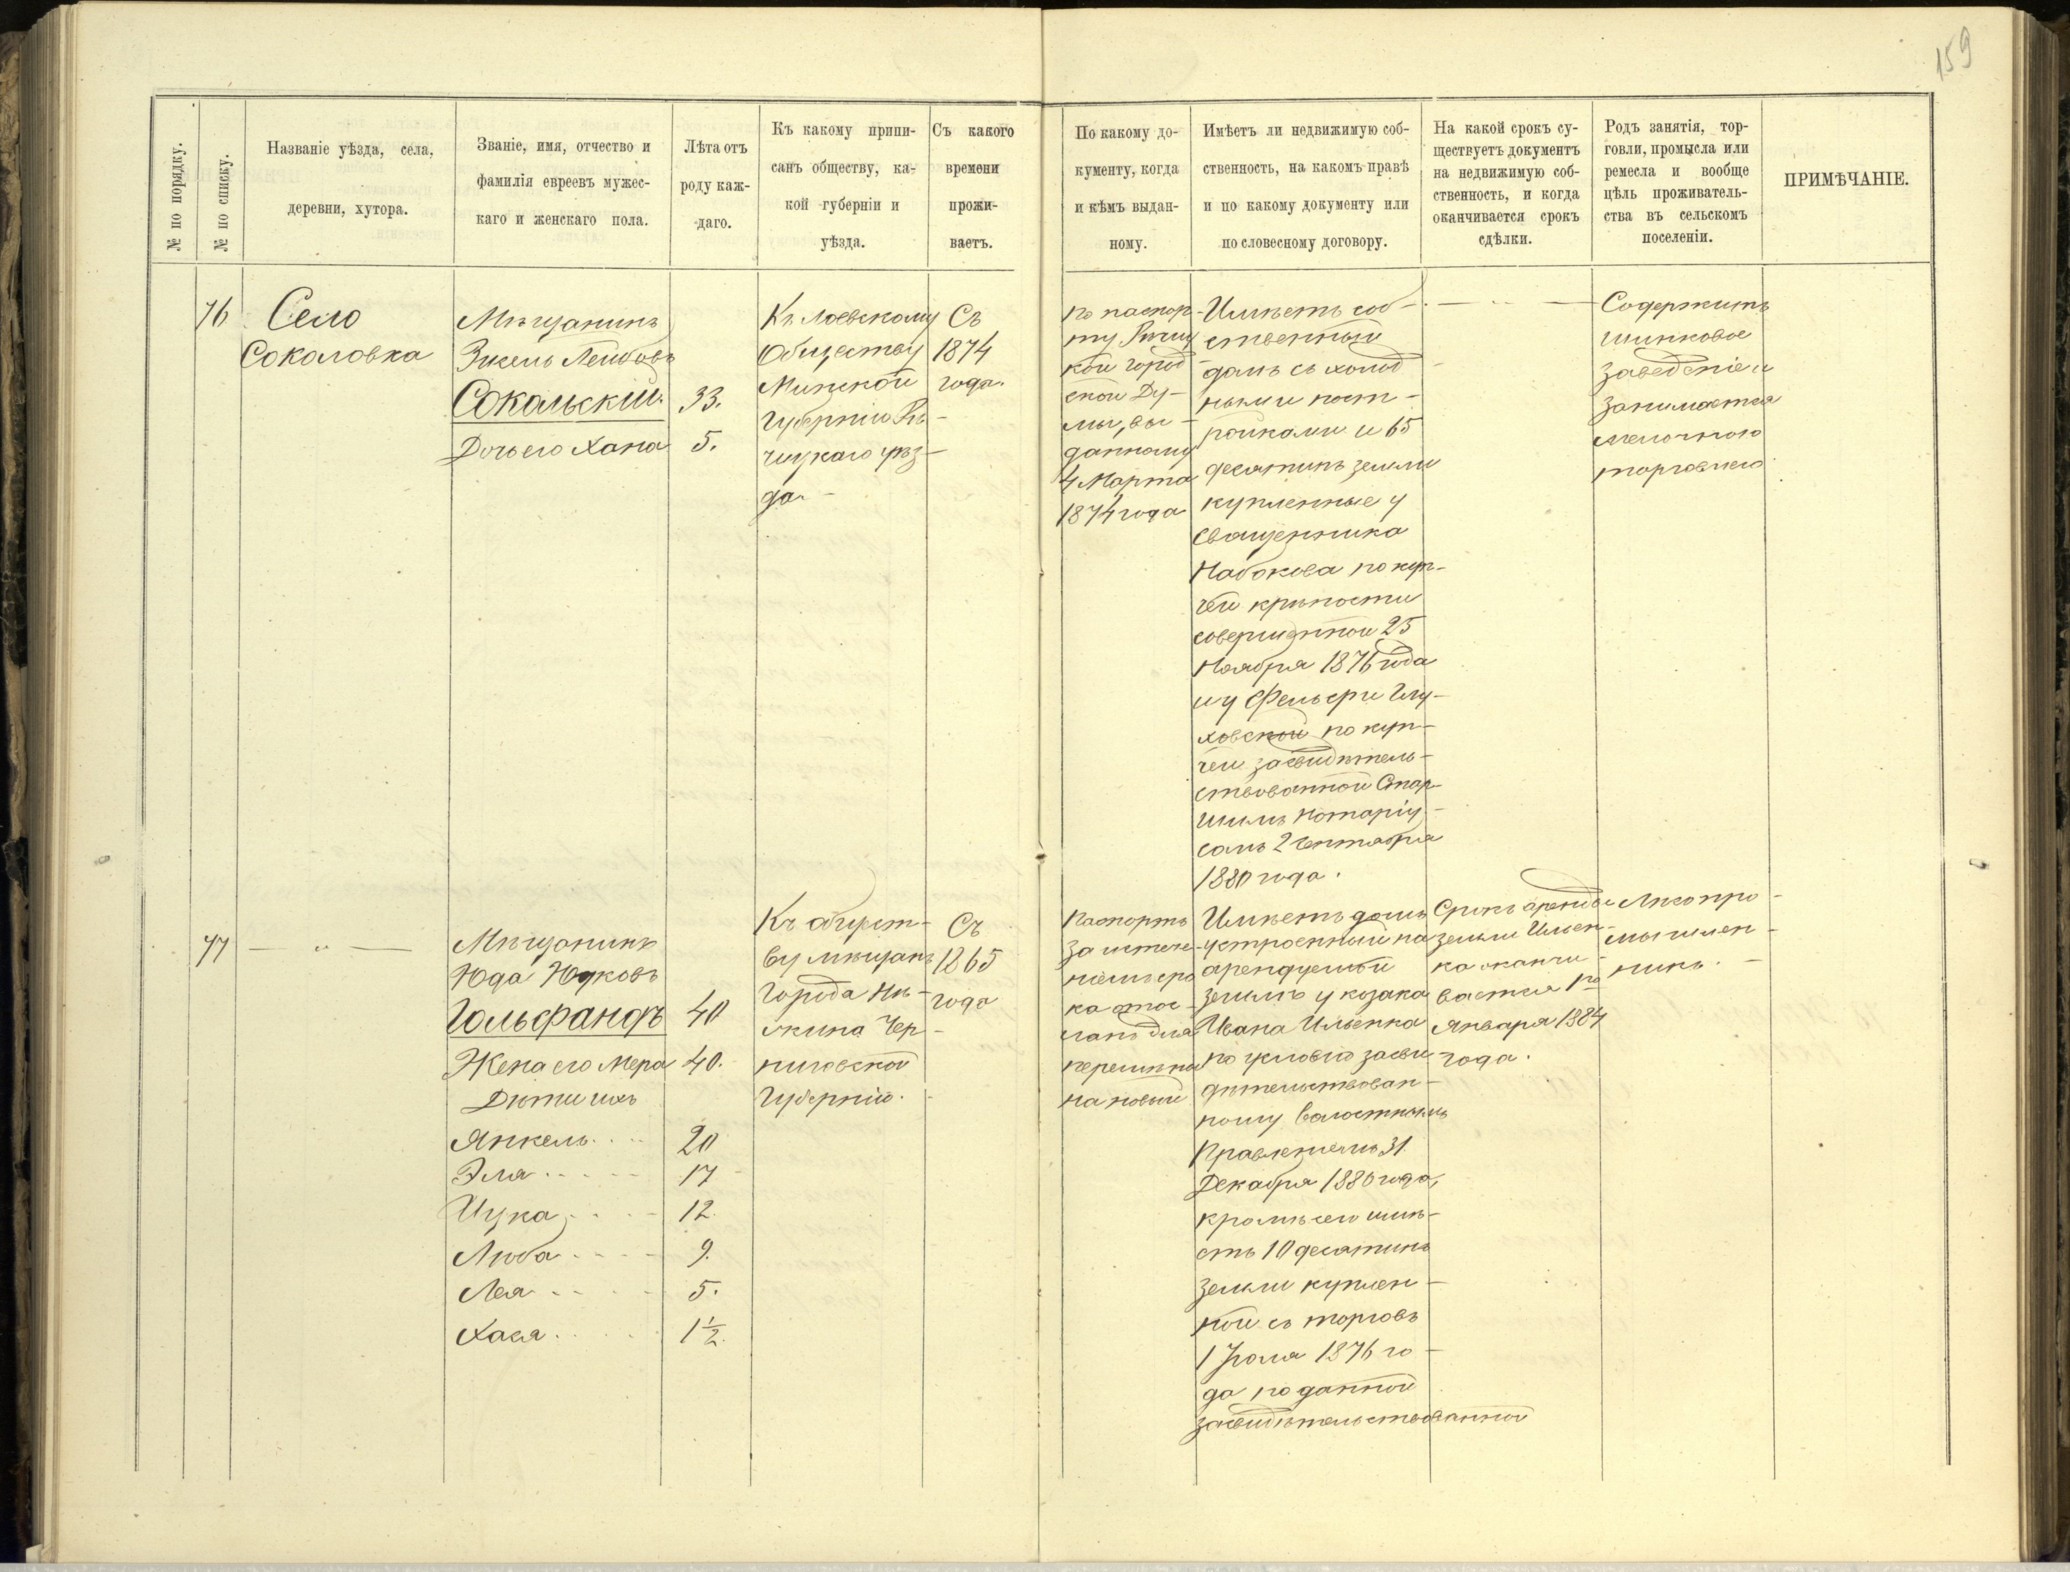 159
№ по порядку.
№ по списку.
Названіе уѣзда, села,
деревни, хутора.
Званіе, имя, отчество и
фамилія евреевъ мужес-
каго и женскаго пола.
Лѣта отъ
роду каж-
даго.
Къ какому припи-
санъ обществу, ка-
кой губерніи и
уѣзда.
Съ какого
времени
прожи-
ваетъ.
По какому до-
кументу, когда
и кѣмъ выдан-
ному.
Имѣетъ ли недвижимую соб-
ственность, на какомъ правѣ
и по какому документу или
по словесному договору.
На какой срокъ су-
ществуетъ документъ
на недвижимую соб-
ственность, и когда
оканчивается срокъ
сдѣлки.
Родъ занятія, тор-
говли, промысла или
ремесла и вообще
цѣль проживатель-
ства въ сельскомъ
поселеніи.
ПРИМѢЧАНІЕ.
76
Село
Соколовка
Мѣщанинъ
Зисель Лейбовъ
Сокольскій.
Дочь его Хана
33.
5.
Къ Лоевскому
Обществу
Минской
Губерніи Рѣ-
чицкаго уѣз-
да.
Съ
1874
года.
По паспор-
ту Речиц
кой Город
ской Ду-
мы, вы-
данному
4 Марта
1874 года
Имѣетъ соб-
ственный
домъ съ холод
ными пост-
ройками и 65
десятинъ земли
купленные у
священника
Набокова по куп-
чей крѣпости
совершенной 25
Ноября 1876 года
и у Глу-
ховской по куп-
чей засвидѣтель-
ствованной Стар-
шимъ Нотаріу-
сомъ 2 Сентября
1880 года.
Содержитъ
шинковое
заведеніе и
занимается
мелочною
торговлею
77
Мѣщанинъ
Юда Юдковъ
Гольфандъ
Жена его Мера
Дѣти ихъ
Янкель
Эля
Цука
Люба
Лея
Хася
40
40.
20
17
12.
9.
5.
1½
Къ общест-
ву мѣщанъ
Города Нѣ-
жина Чер-
ниговской
Губерніи.
Съ
1865
года
Паспортъ
за истече-
ніемъ сро
ка отос-
ланъ для
перемѣны
на новый
Имѣетъ домъ
устроенный на
арендуемой
землѣ у козака
Ивана Ильенка
по условію засви
дѣтельствован-
ному Волостнымъ
Правленіемъ 31
Декабря 1880 года,
кромѣ сего имѣ-
етъ 10 десятинъ
земли куплен-
ной съ торговъ
1 Іюля 1876 го-
да по данной
засвидѣтельствованной
Срокъ аренды
земли Ильен-
ка оканчи-
вается 1го
Января 1884
года.
Лѣсопро-
мышлен-
никъ.